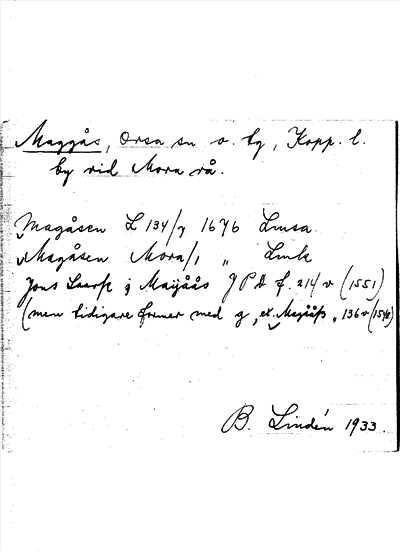 Maggås, Orsa sn o. tg, Kopp. l.
by vid Mora rå.
Magåsen L 134/7 1676 Lmsa
Magåsen Mora/1 „ Lmk
Jons Larss j Maijåås J P Ä f. 214 v (1551)
(men tidigare former med g, 136 v
B. Lindén 1933.